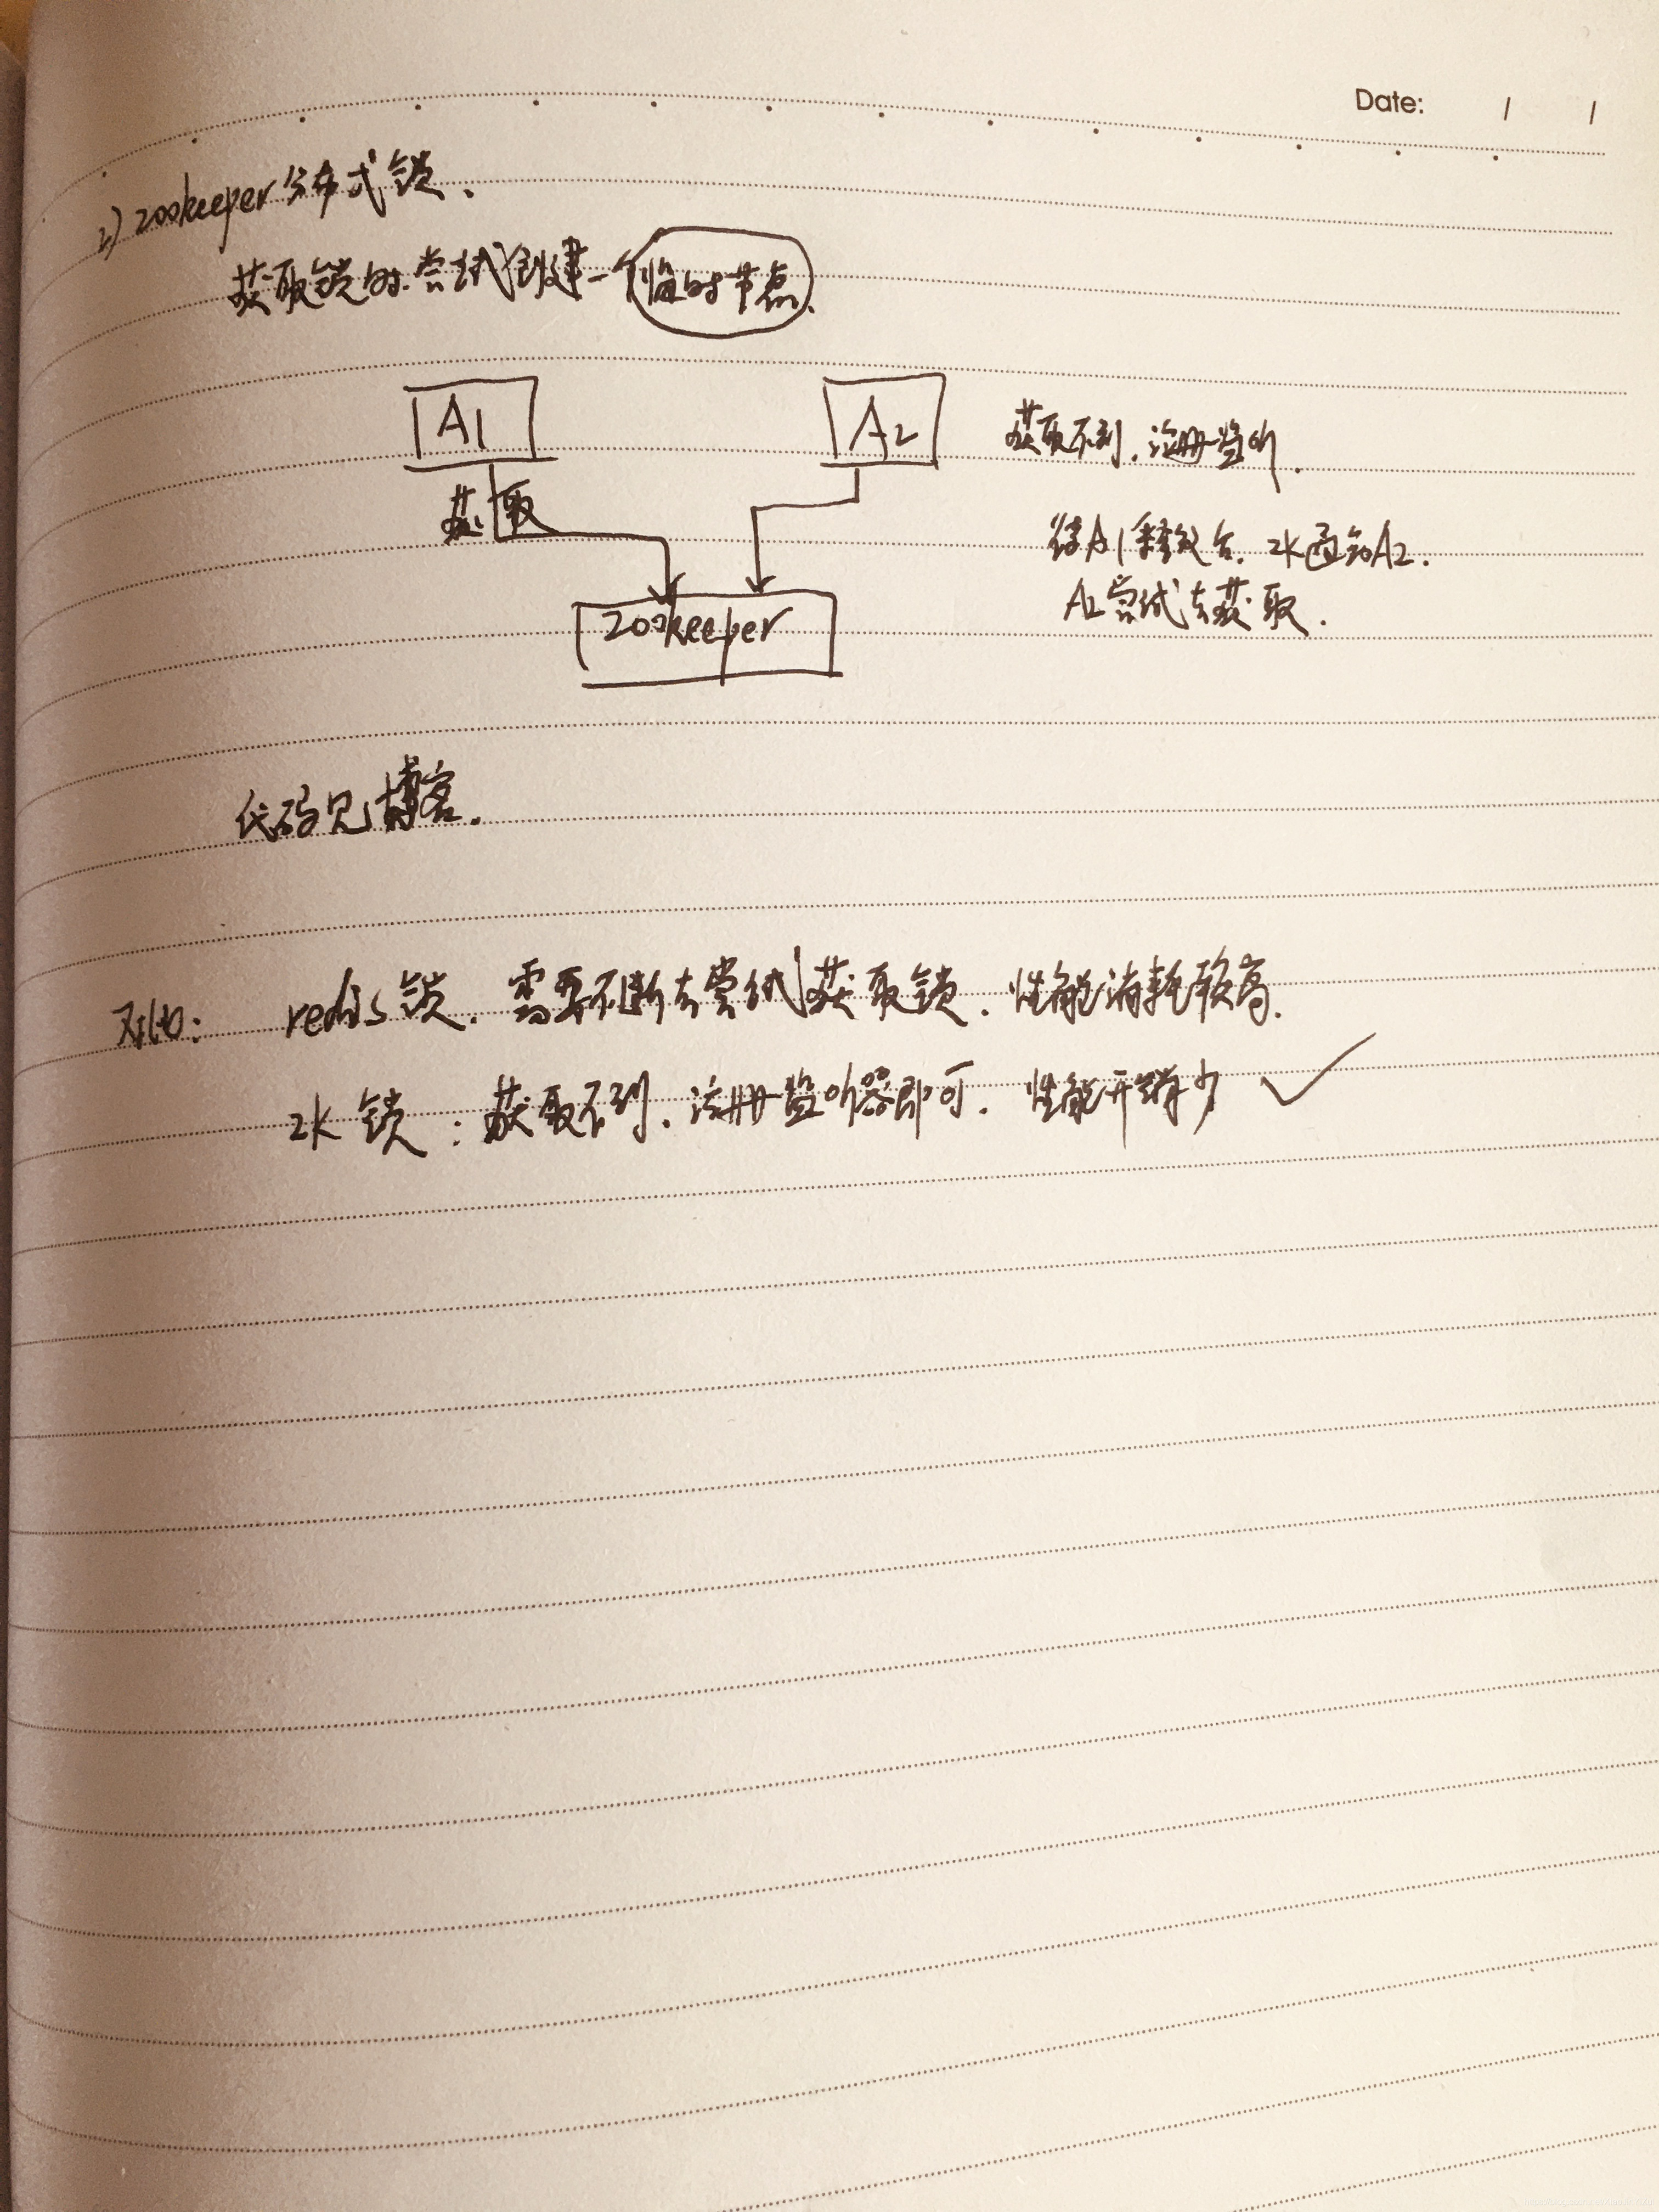 Date: / /
2) zookeeper分布式锁、
获取锁时.尝试创建一个临时节点、
A1
A2
获取不到.注册监听.
获取
待A1释放后.zk通知A2.
A2尝试去获取.
zookeeper
代码见博客.
对比: redis锁.需要不断去尝试获取锁.性能消耗较高.
zk锁:获取不到.注册监听器即可.性能开销少 ✓